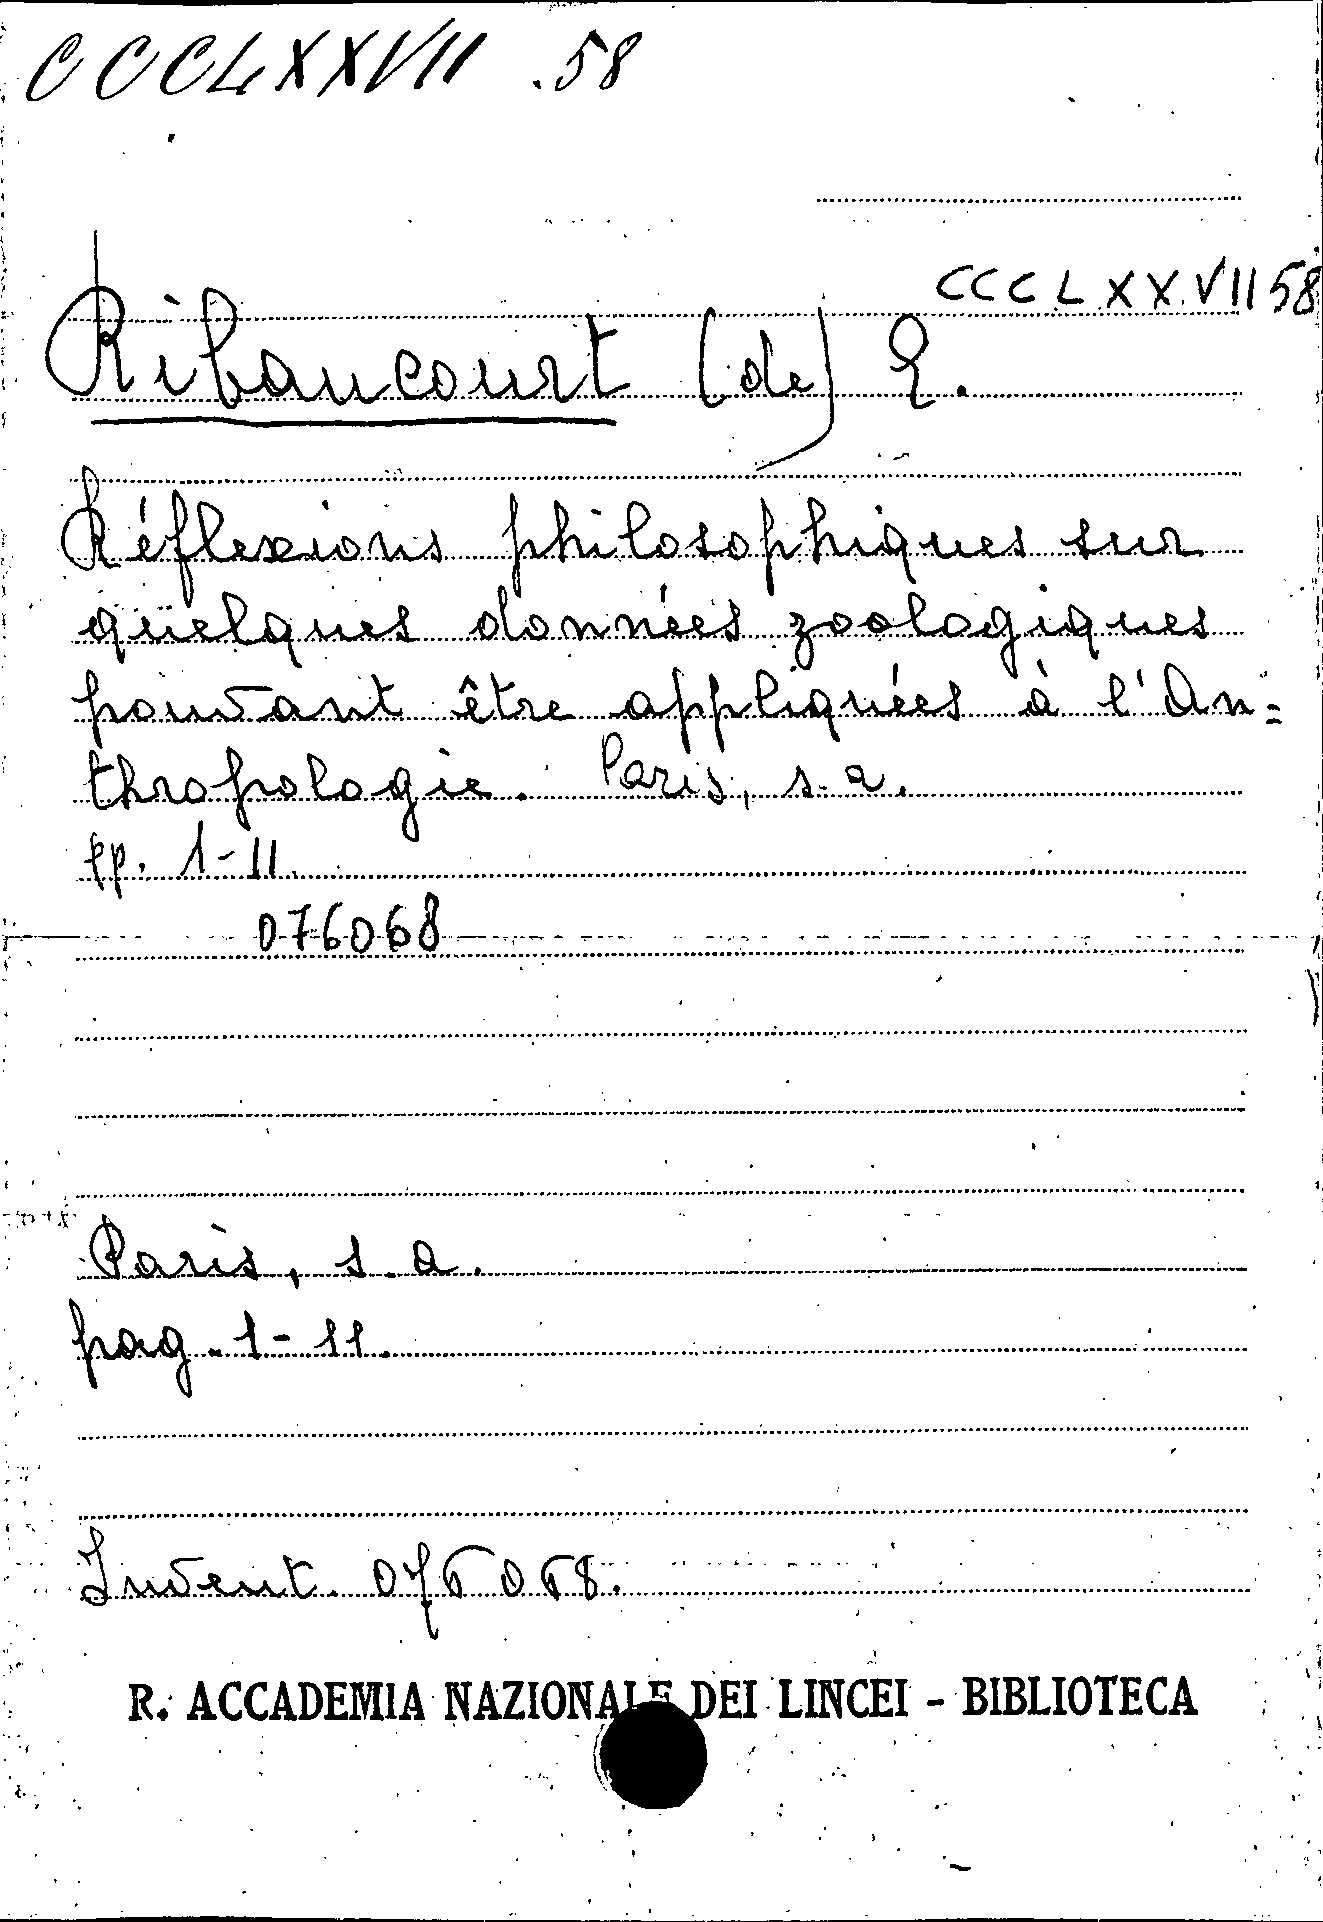 CCCLXXVII .58
CCCLXXVII 58
Ribaucourt (de) E.
Réflexions philosophiques sur
quelques données zoologiques
pouvant être appliquées à l'An=
thropologie. Paris, s.a.
pp. 1-11.
076068
Paris, s.a.
pag. 1-11.
Invent. 076068.
R. ACCADEMIA NAZIONALE DEI LINCEI - BIBLIOTECA